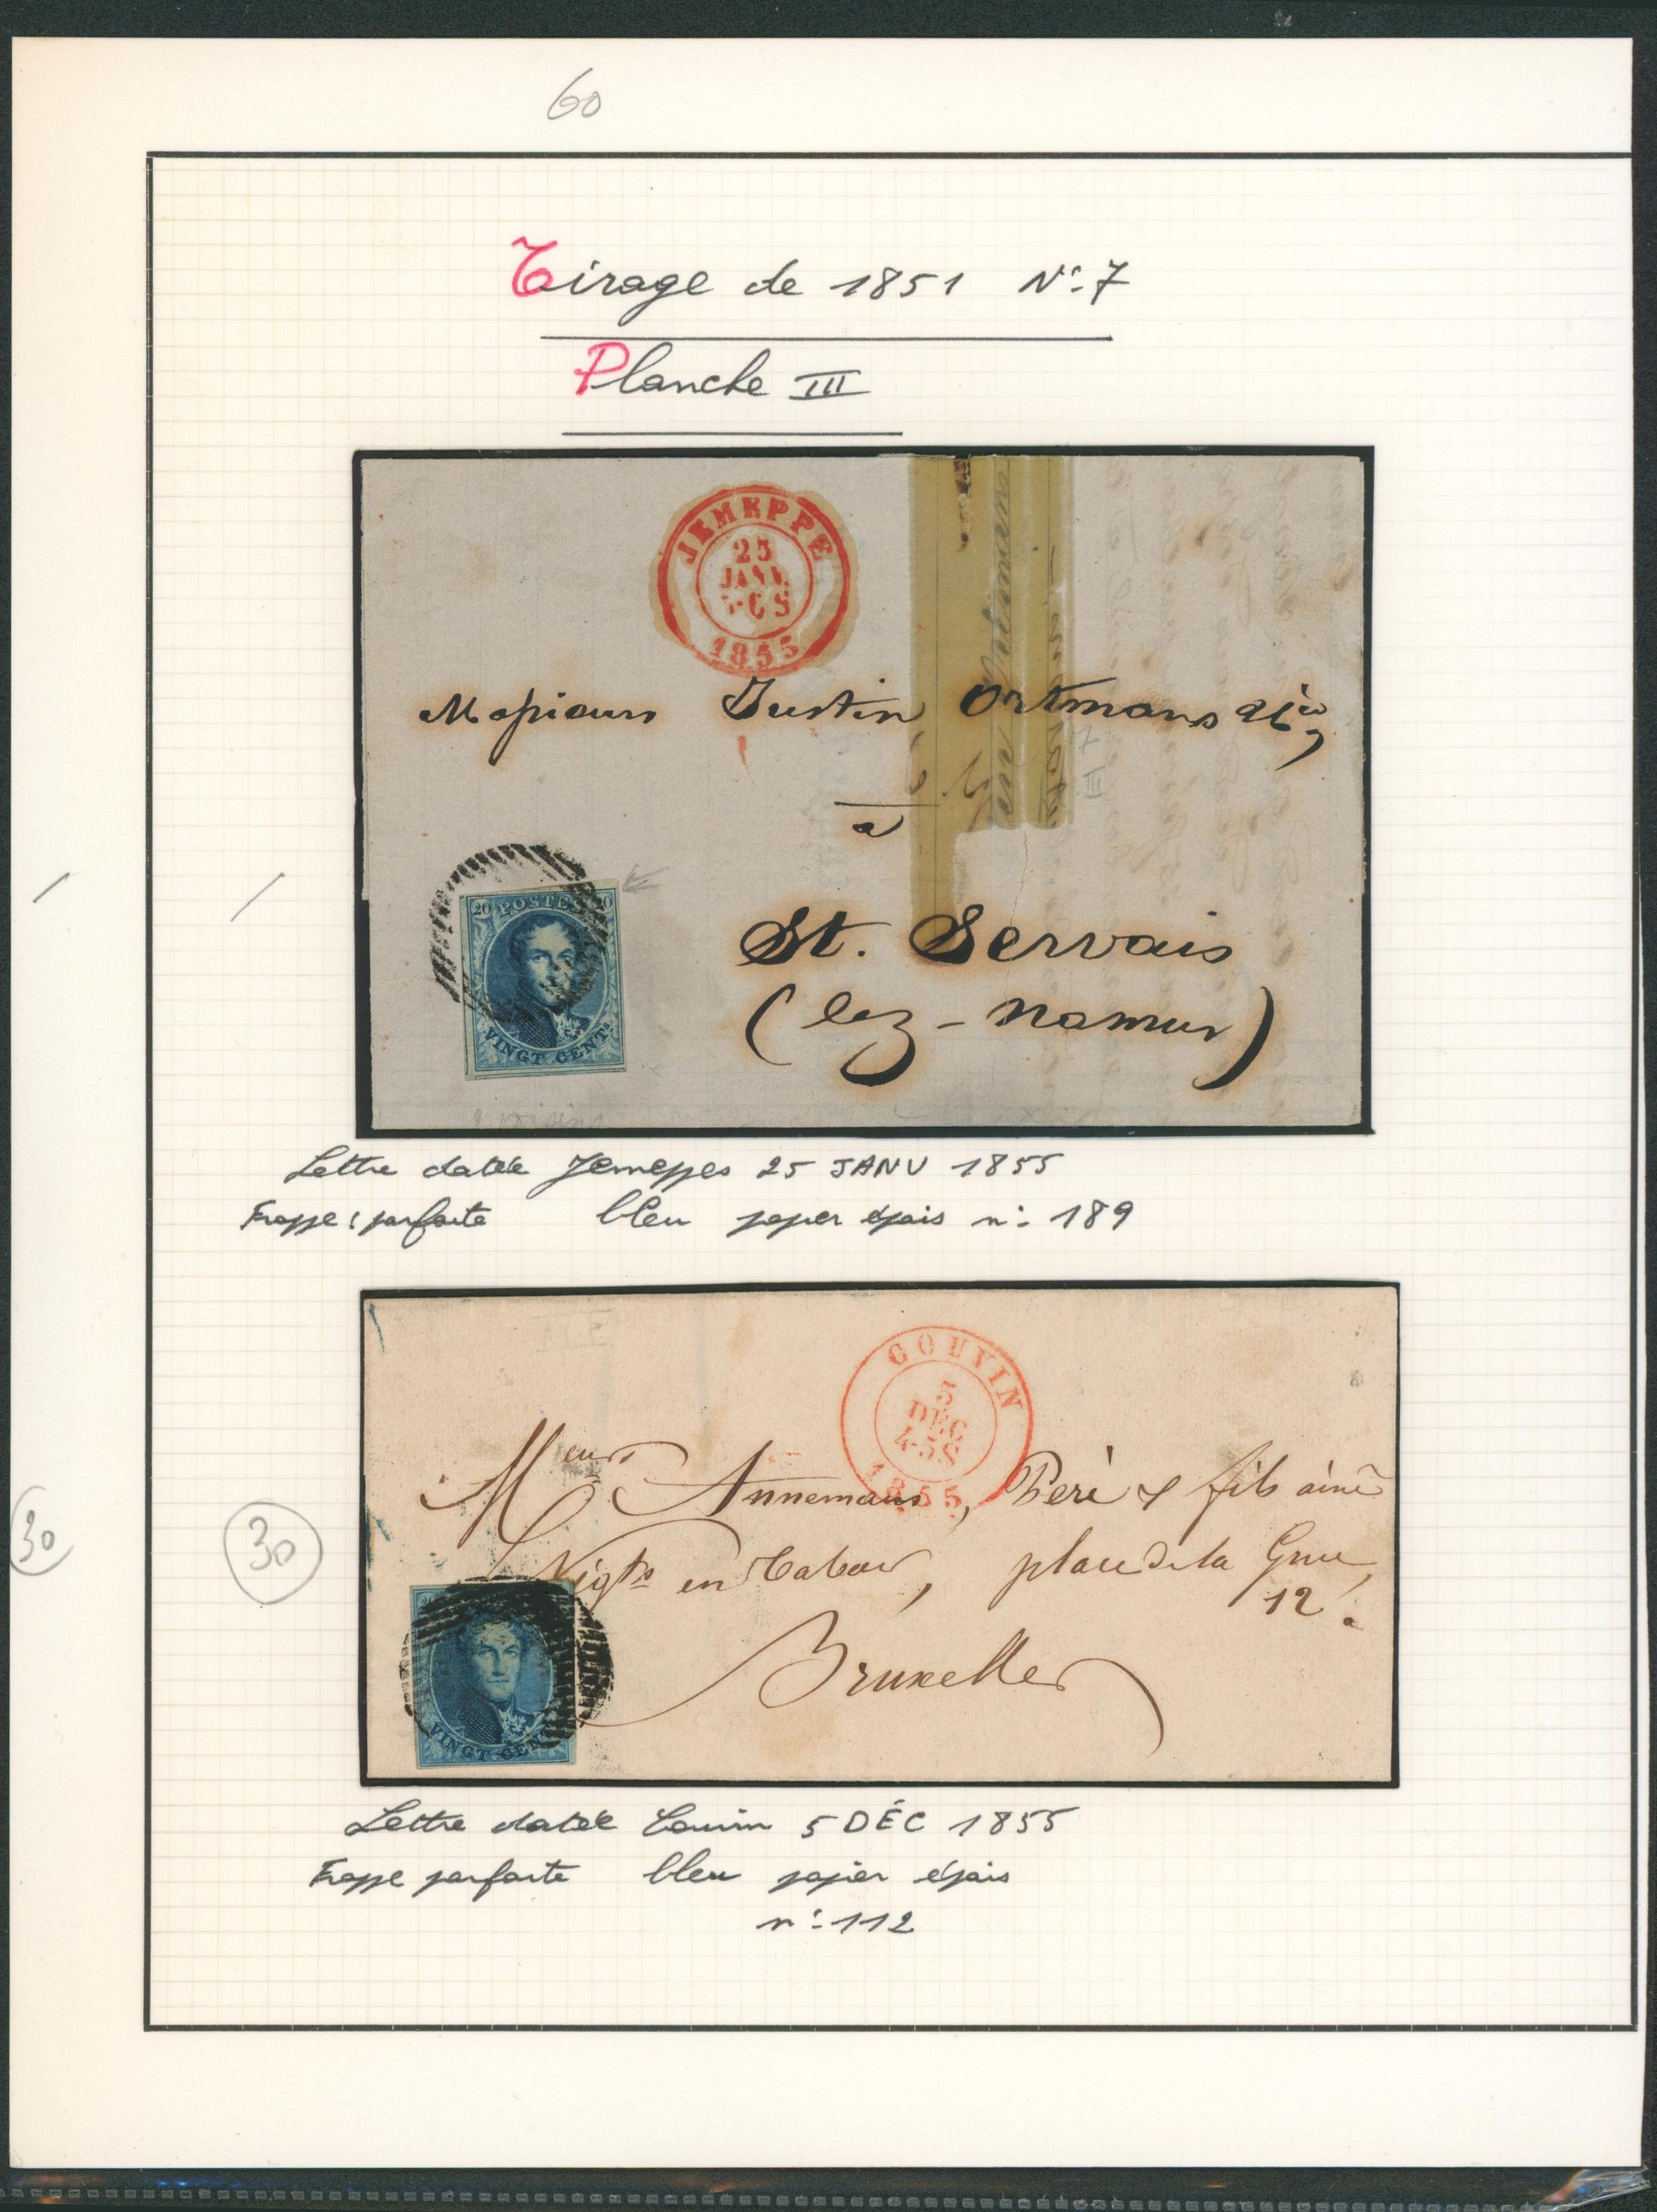 60
Tirage de 1851 N°:7
Planche III
JEMEPPE
25
JANV.
S
1855
Justin Ortmans
a
20 POSTES 20
VINGT CENTS
St. Servais
(lez-Namur)
Lettre datée Jemeppes 25 JANV 1855
Frappe : parfaite bleu papier épais n°: 189
COUVIN
5
DEC
4-5S
1855
Annemans, Père & fils ainé
Nigts en Tabac, place de la Grue,
12.
30
30
Bruxelles
VINGT CENTS
Lettre datée Couvin 5 DÉC 1855
Frappe parfaite bleu papier épais
n°: 112